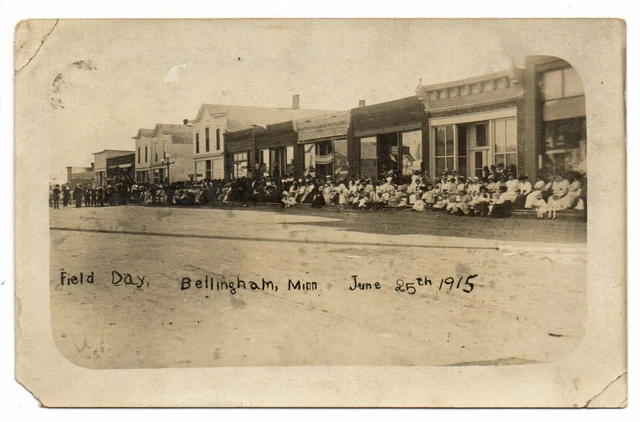 Field Day, Bellingham, Minn June 25th 1915